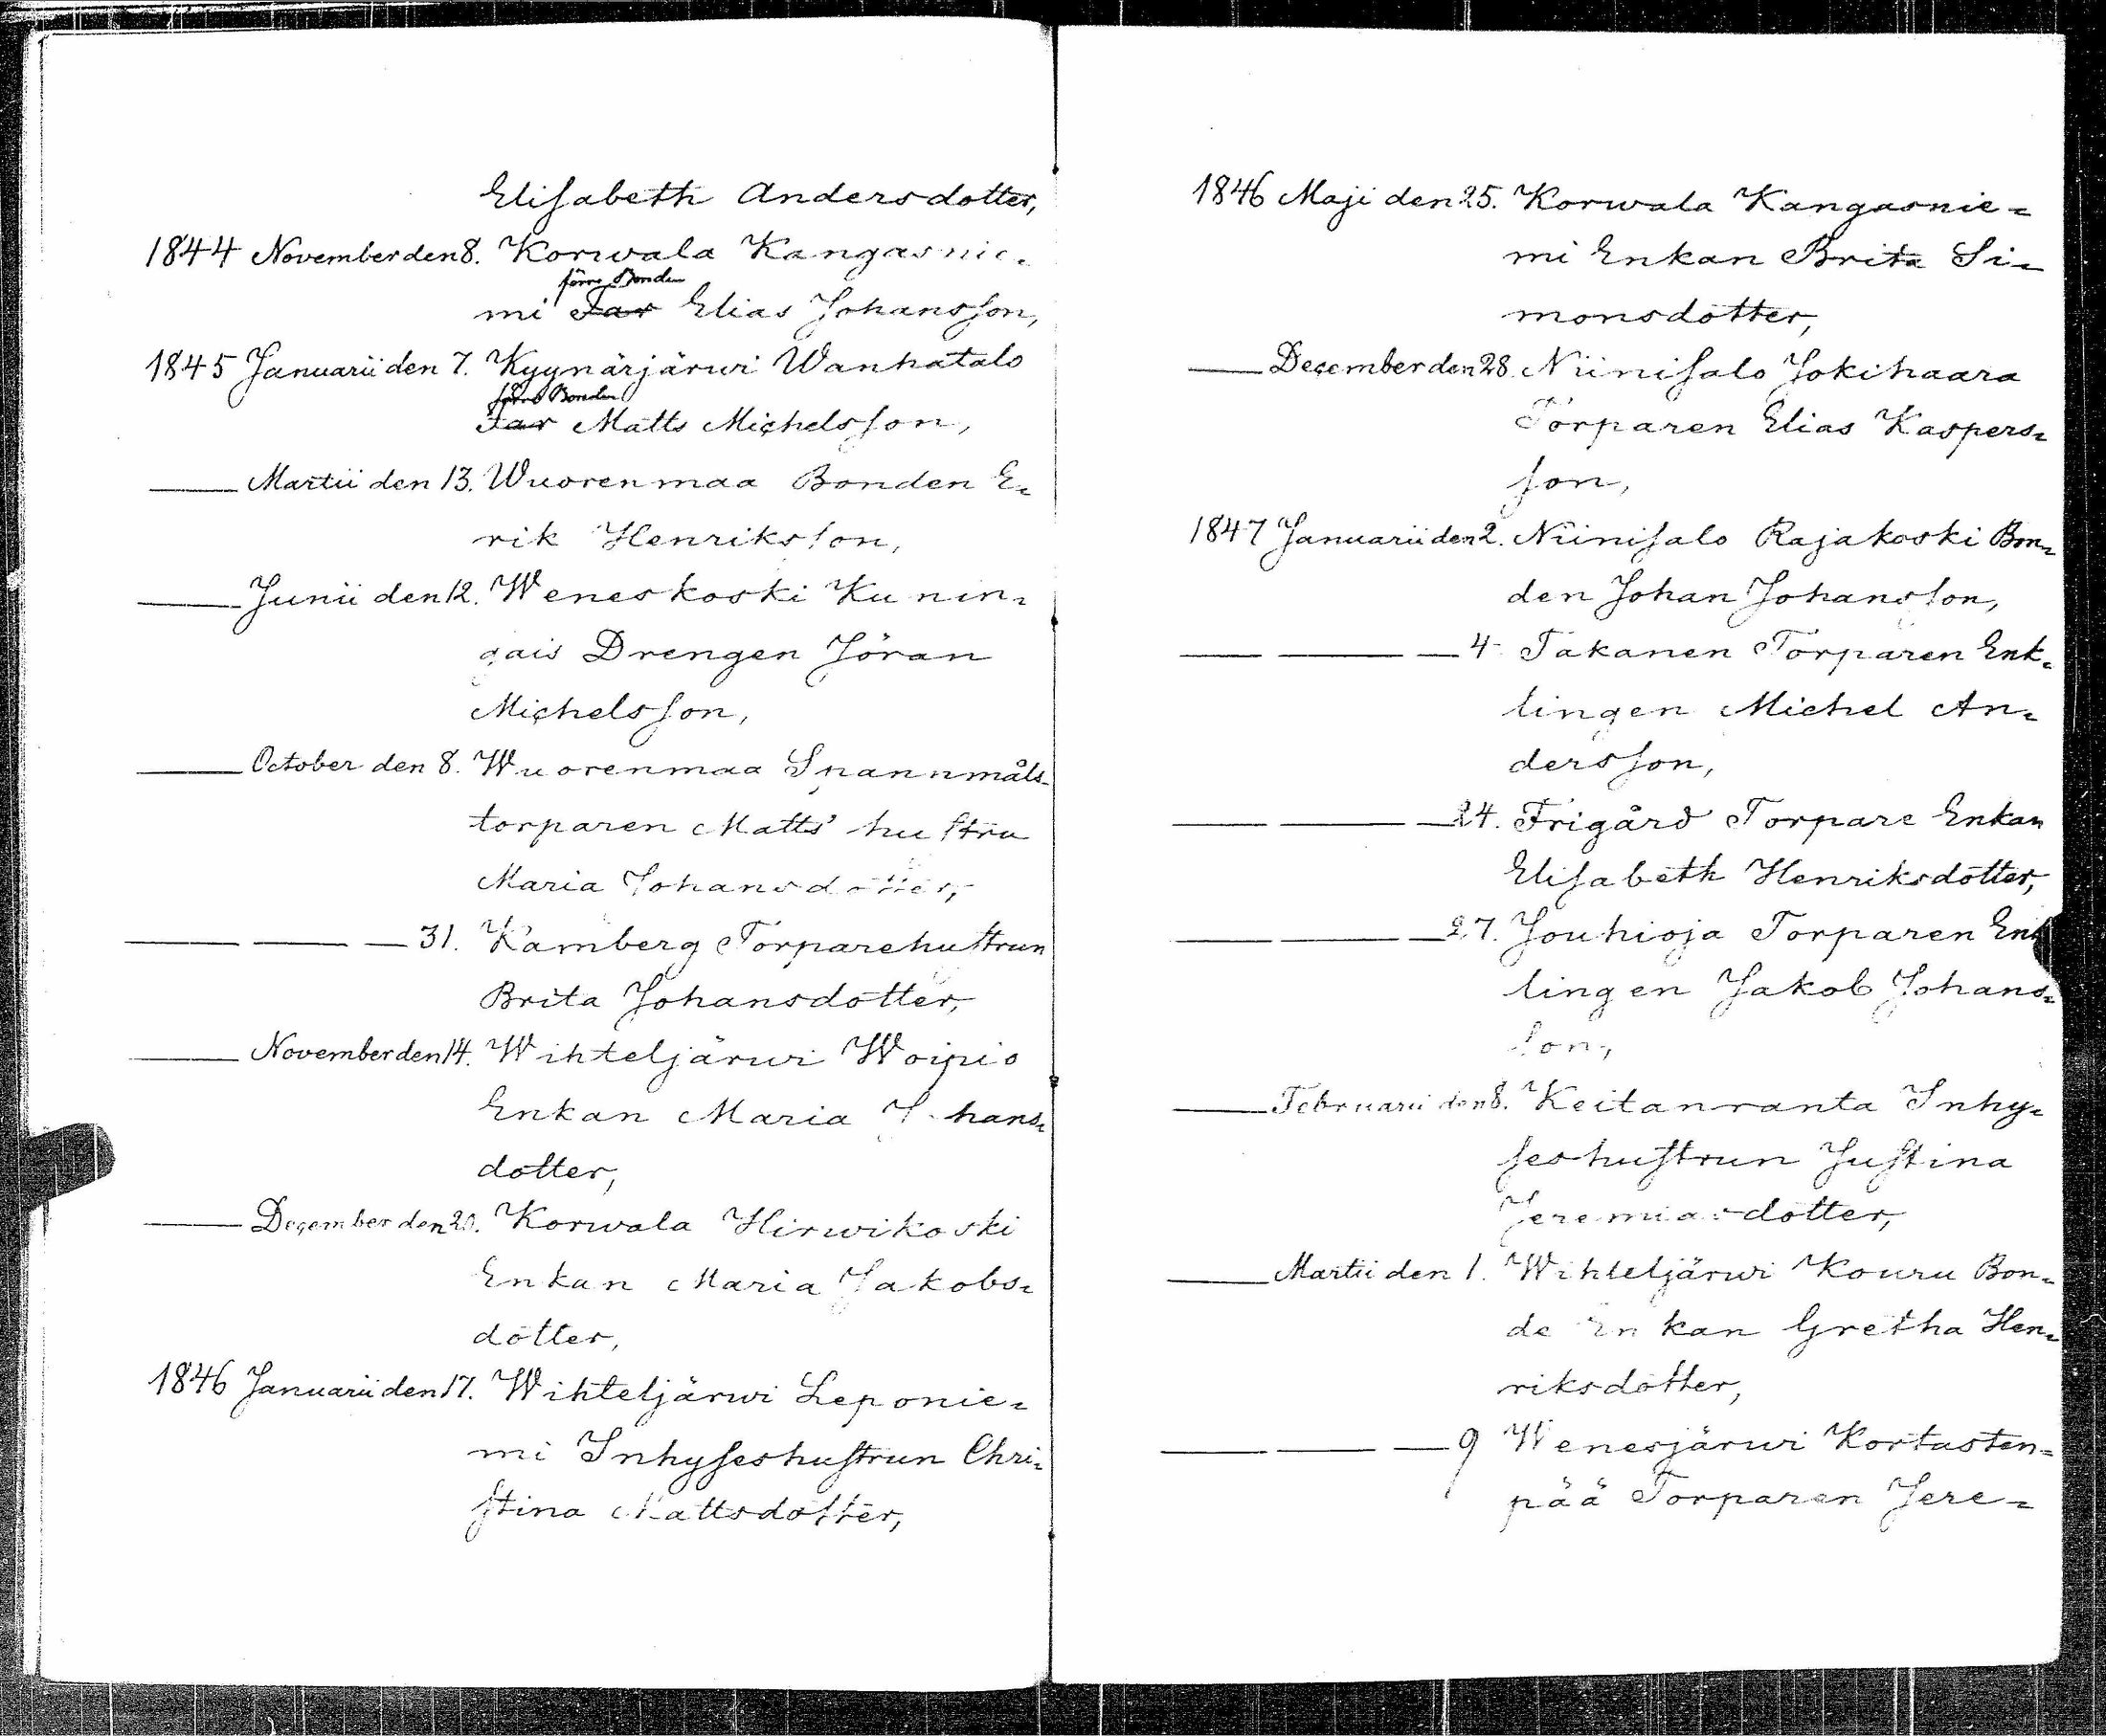 Elisabeth Andersdotter,
1844 November den 8. Korwala Kangasnie=
förre Bonden
mi Far Elias Johansson,
1845 Januarii den 7. Kyynärjärwi Wanhatalo
förre Bonden
Far Matts Michelsson,
—— Martii den 13. Wuorenmaa Bonden E=
rik Henriksson,
—— Junii den 12. Weneskoski Kunin=
gais Drengen Jöran
Michelsson,
—— October den 8. Wuorenmaa Spannmåls=
torparen Matts' hustru
Maria Johansdotter,
—— —— — 31. Kamberg Torparehustrun
Brita Johansdotter,
—— November den 14. Wihteljärwi Woipio
Enkan Maria Johans=
dotter,
—— December den Korwala Hirwikoski
Enkan Maria Jakobs=
dotter,
1846 Januarii den 17. Wihteljärwi Leponie=
mi Inhyseshustrun Chri=
stina Mattsdotter,
1846 Maji den 25. Korwala Kangasnie=
mi Enkan Brita Si=
monsdotter,
—— December den 28. Niinisalo Jokihaara
Torparen Elias Kaspers=
son,
1847 Januarii den 2. Niinisalo Rajakoski Bon=
den Johan Johansson,
—— —— — 4. Takanen Torparen Enk=
lingen Michel An=
dersson,
—— —— — 24. Frigård Torpare Enkan
Elisabeth Henriksdotter,
—— —— — 27. Jouhioja Torparen Enk
lingen Jakob Johans=
son,
—— Februarii den 8. Keitanranta Inhy=
seshustrun Justina
Jeremiasdotter,
—— Martii den 1. Wihteljärwi Kouru Bon=
de Enkan Gretha Hen=
riksdotter,
—— —— — 9 Wenesjärwi Kortasten=
pää Torparen Jere=